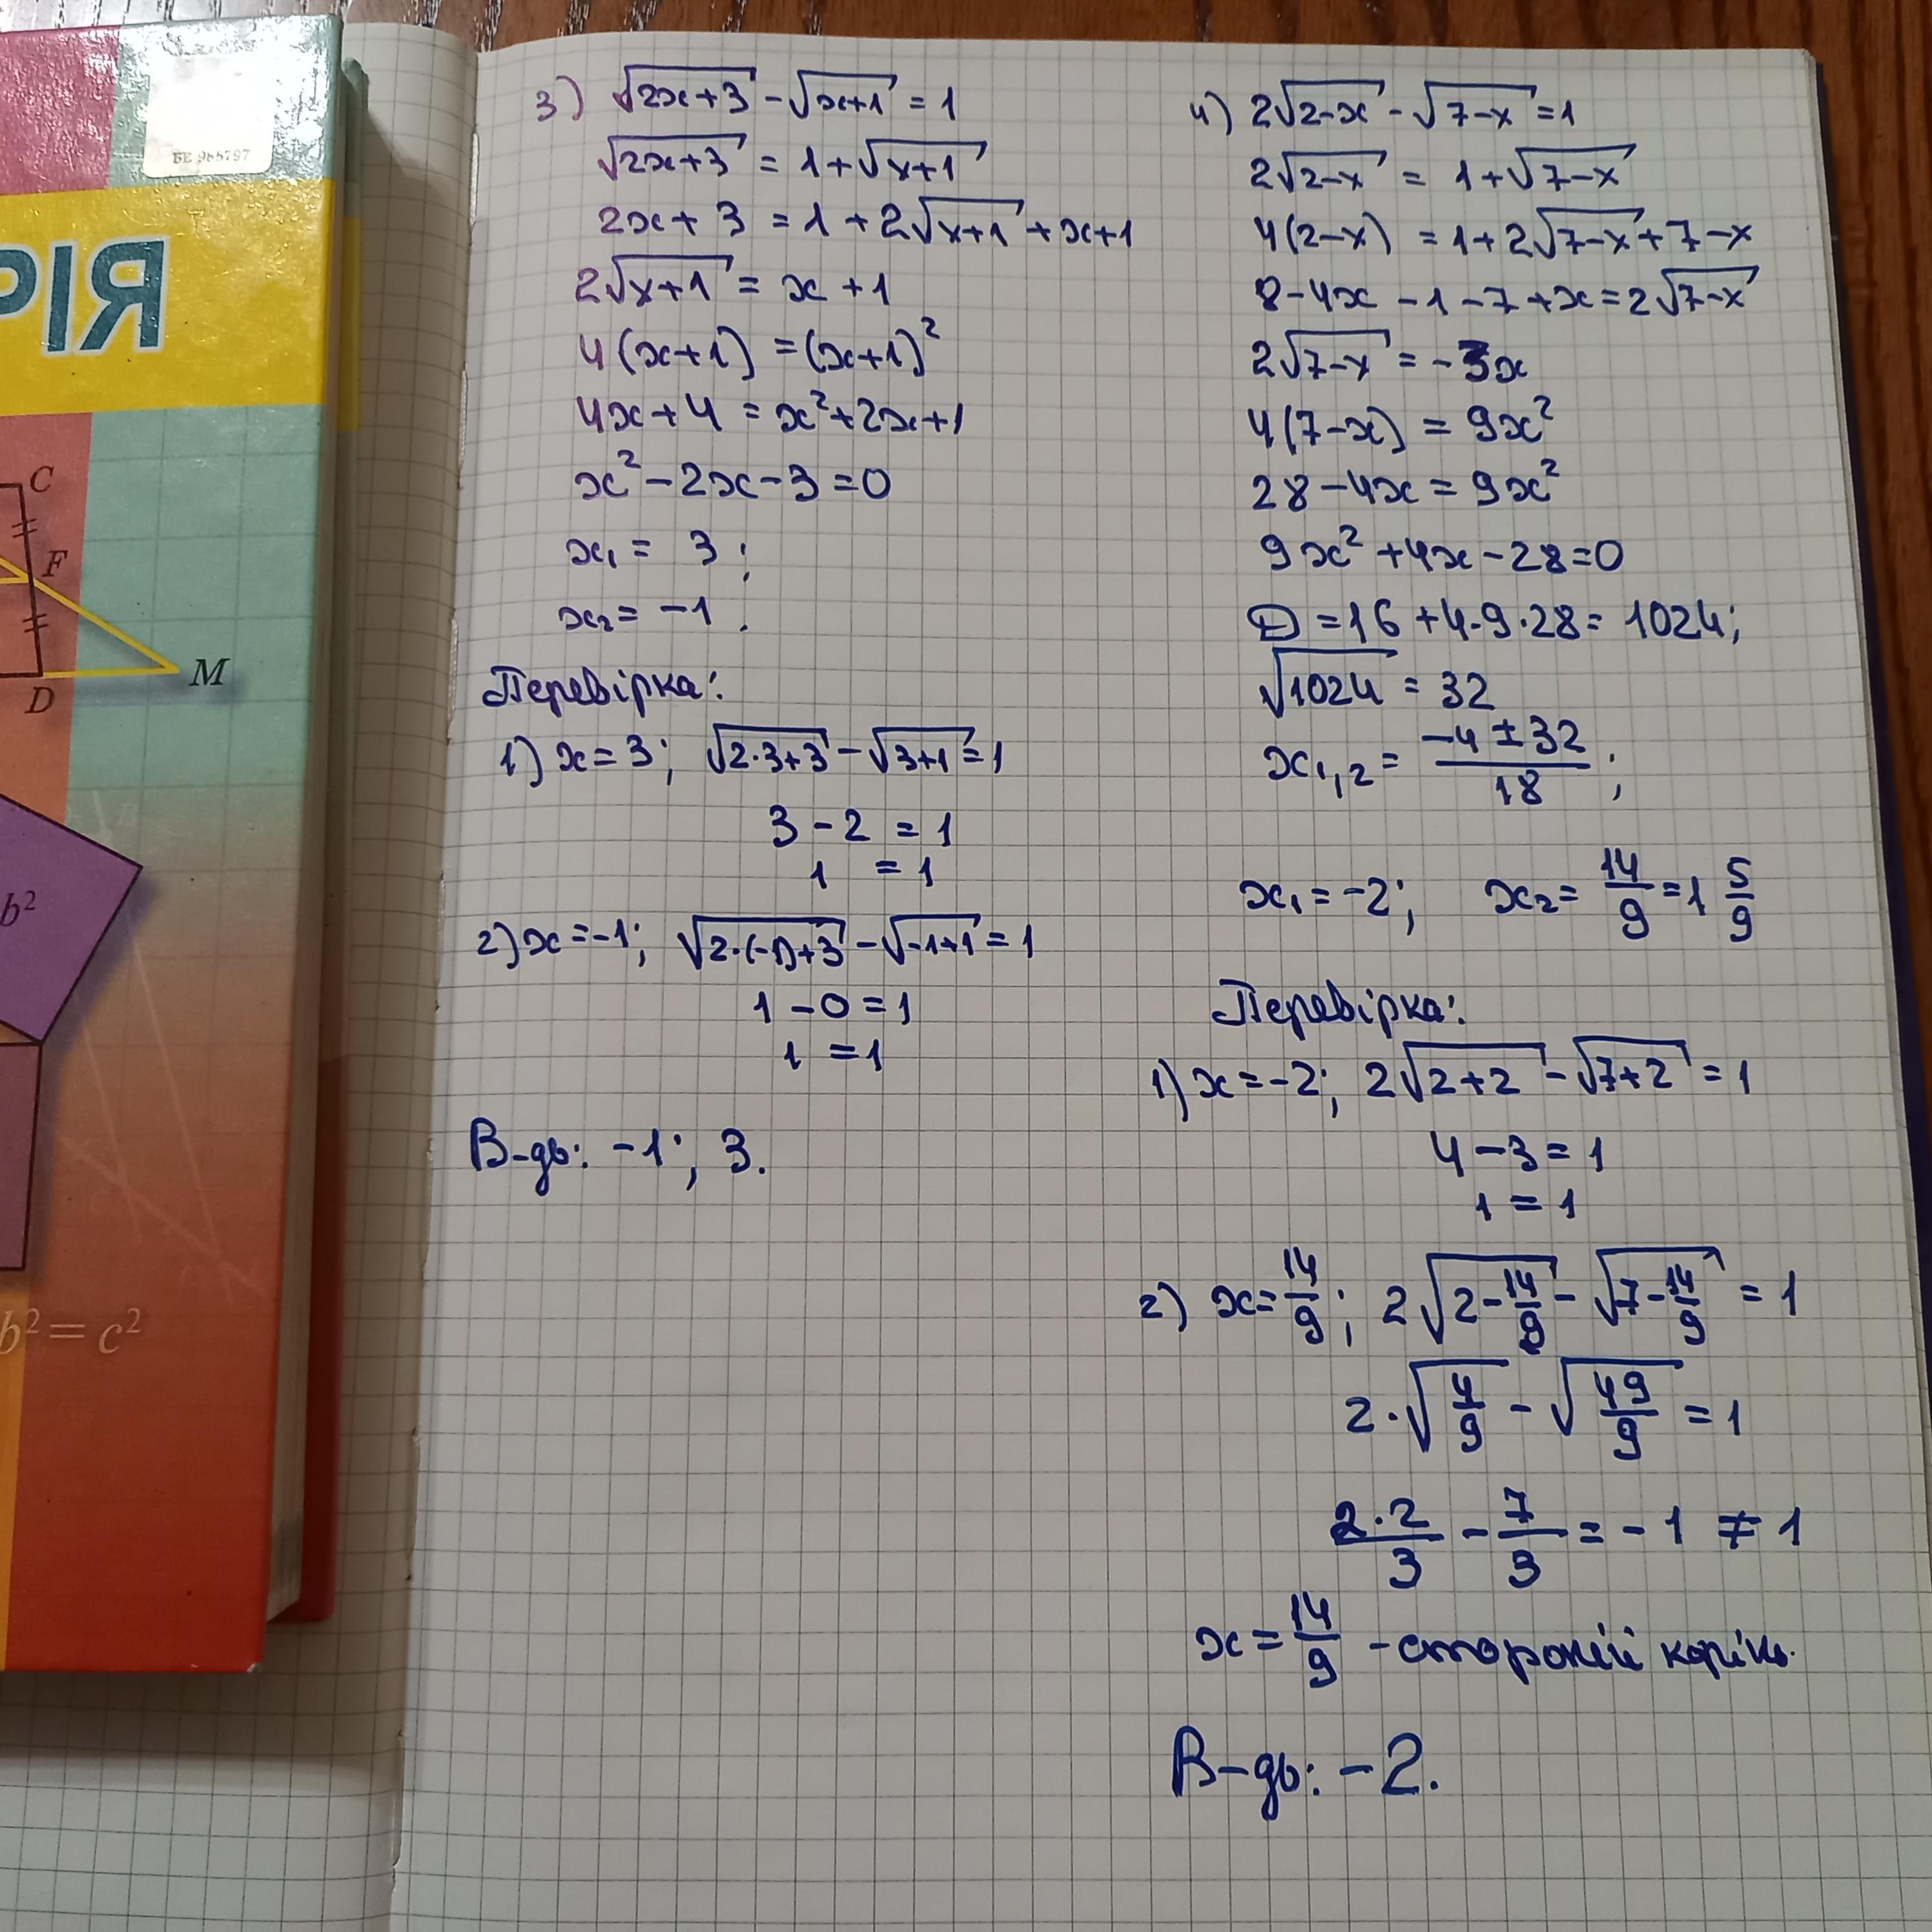 БЕ 985797
RIP
C
F
M
D
b²
b² = c²
3) √(2x+3) - √(x+1) = 1
√(2x+3) = 1 + √(x+1)
2x + 3 = 1 + 2√(x+1) + x+1
2√(x+1) = x + 1
4(x+1) = (x+1)²
4x + 4 = x² + 2x + 1
x² - 2x - 3 = 0
x₁ = 3 ;
x₂ = -1 .
Перевірка:
1) x = 3; √(2·3+3) - √(3+1) = 1
3 - 2 = 1
1 = 1
2) x = -1; √(2·(-1)+3) - √(-1+1) = 1
1 - 0 = 1
1 = 1
В-дь: -1; 3.
4) 2√(2-x) - √(7-x) = 1
2√(2-x) = 1 + √(7-x)
4(2-x) = 1 + 2√(7-x) + 7 - x
8 - 4x - 1 - 7 + x = 2√(7-x)
2√(7-x) = -3x
4(7-x) = 9x²
28 - 4x = 9x²
9x² + 4x - 28 = 0
D = 16 + 4·9·28 = 1024;
√1024 = 32
x₁,₂ = (-4 ± 32)/18 ;
x₁ = -2; x₂ = 14/9 = 1 5/9
Перевірка:
1) x = -2; 2√(2+2) - √(7+2) = 1
4 - 3 = 1
1 = 1
2) x = 14/9; 2√(2 - 14/9) - √(7 - 14/9) = 1
2·√(4/9) - √(49/9) = 1
2·2/3 - 7/3 = -1 ≠ 1
x = 14/9 - сторонній корінь.
В-дь: -2.